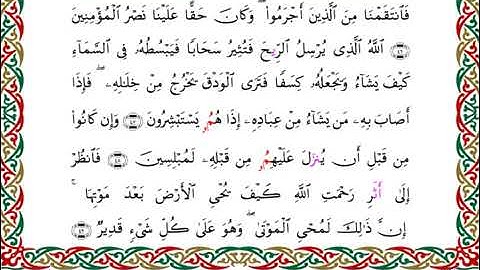 فَٱنتَقَمْنَا مِنَ ٱلَّذِينَ أَجْرَمُوا۟ ۖ وَكَانَ حَقًّا عَلَيْنَا نَصْرُ ٱلْمُؤْمِنِينَ
﴿٤٦﴾ ٱللَّهُ ٱلَّذِى يُرْسِلُ ٱلرِّيحَ فَتُثِيرُ سَحَابًا فَيَبْسُطُهُۥ فِى ٱلسَّمَآءِ
كَيْفَ يَشَآءُ وَيَجْعَلُهُۥ كِسَفًا فَتَرَى ٱلْوَدْقَ يَخْرُجُ مِنْ خِلَـٰلِهِۦ ۖ فَإِذَآ
أَصَابَ بِهِۦ مَن يَشَآءُ مِنْ عِبَادِهِۦٓ إِذَا هُمُۥ يَسْتَبْشِرُونَ ﴿٤٧﴾ وَإِن كَانُوا۟
مِن قَبْلِ أَن يُنزَلَ عَلَيْهِمُۥ مِن قَبْلِهِۦ لَمُبْلِسِينَ ﴿٤٨﴾ فَٱنظُرْ
إِلَىٰٓ أَثَرِ رَحْمَتِ ٱللَّهِ كَيْفَ يُحْىِ ٱلْأَرْضَ بَعْدَ مَوْتِهَآ ۚ
إِنَّ ذَٰلِكَ لَمُحْىِ ٱلْمَوْتَىٰ ۖ وَهُوَ عَلَىٰ كُلِّ شَىْءٍ قَدِيرٌ ﴿٤٩﴾